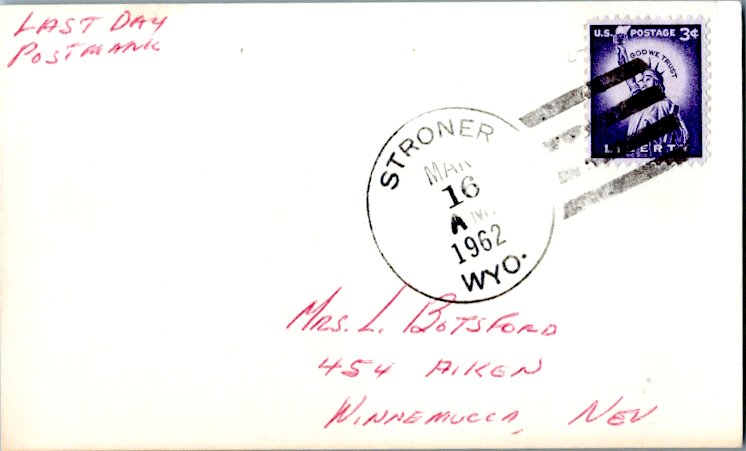 LAST DAY
POSTMARK
U.S. POSTAGE 3¢
IN GOD WE TRUST
LIBERTY
STRONER
MAR
16
AM
1962
WYO.
MRS. L. BOTSFORD
454 AIKEN
WINNEMUCCA, NEV